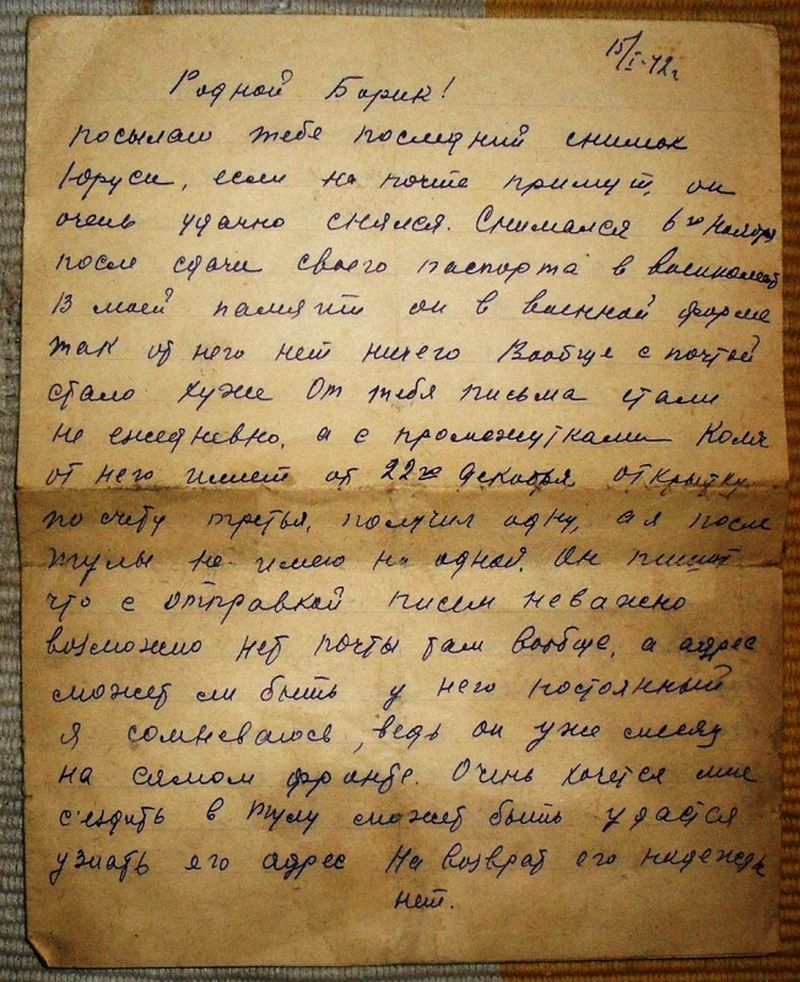 15/I-42г
Родной Борик!
посылаю тебе последний снимок
Юруси, если на почте примут, он
очень удачно снялся. Снимался 6го ноября
после сдачи своего паспорта в военкомат
В моей памяти он в военной форме
так от него нет ничего Вообще с почтой
стало хуже От тебя письма стали
не ежедневно, а с промежутками Коля
от него имеет от 22го декабря открытку
по счету третья, получил одну, а я после
Тулы не имею ни одной. Он пишет
что с отправкой писем неважно
возможно нет почты там вообще, а адрес
может ли быть у него постоянный
я сомневаюсь, ведь он уже месяц
на самом фронте. Очень хочется мне
съездить в Тулу может быть удастся
узнать его адрес На возврат его надежды
нет.